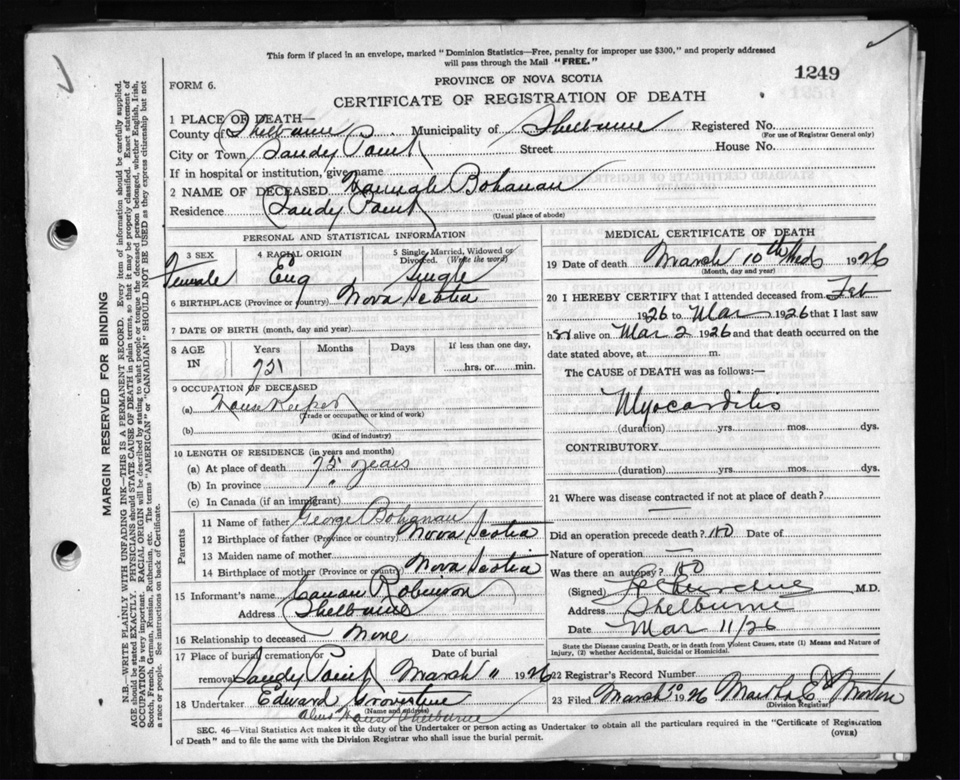 This form if placed in an envelope, marked "Dominion Statistics—Free, penalty for improper use $300," and properly addressed
will pass through the Mail "FREE."
1249
FORM 6.
PROVINCE OF NOVA SCOTIA
CERTIFICATE OF REGISTRATION OF DEATH
1 PLACE OF DEATH—
County of Shelburne Municipality of Shelburne Registered No.
(For use of Registrar General only)
City or Town Sandy Point Street House No.
If in hospital or institution, give name
2 NAME OF DECEASED Hannah Bohanan
Residence Sandy Point
(Usual place of abode)
PERSONAL AND STATISTICAL INFORMATION
3 SEX 4 RACIAL ORIGIN 5 Single, Married, Widowed or
Divorced. (Write the word)
Female Eng Single
6 BIRTHPLACE (Province or country) Nova Scotia
7 DATE OF BIRTH (month, day and year)
8 AGE IN Years Months Days If less than one day,
75 hrs. or min.
9 OCCUPATION OF DECEASED
(a) House Keeper
(Trade or occupation or kind of work)
(b)
(Kind of industry)
10 LENGTH OF RESIDENCE (in years and months)
(a) At place of death 75 years
(b) In province
(c) In Canada (if an immigrant)
Parents
11 Name of father George Bohanan
12 Birthplace of father (Province or country) Nova Scotia
13 Maiden name of mother
14 Birthplace of mother (Province or country) Nova Scotia
15 Informant's name Robinson
Address Shelburne
16 Relationship to deceased None
17 Place of burial cremation or Date of burial
removal Sandy Point March 11 1926
18 Undertaker Edward
(Name and address)
House Shelburne
MEDICAL CERTIFICATE OF DEATH
19 Date of death March 10th 1926
(Month, day and year)
20 I HEREBY CERTIFY that I attended deceased from Feb
1926 to Mar 1926 that I last saw
her alive on Mar 2 1926 and that death occurred on the
date stated above, at m.
The CAUSE of DEATH was as follows:—
Myocarditis
(duration) yrs. mos. dys.
CONTRIBUTORY
(duration) yrs. mos. dys.
21 Where was disease contracted if not at place of death?
Did an operation precede death? No Date of
Nature of operation —
Was there an autopsy? No
(Signed) M.D.
Address Shelburne
Date Mar 11/26
State the Disease causing Death, or in death from Violent Causes, state (1) Means and Nature of
Injury, (2) whether Accidental, Suicidal or Homicidal.
22 Registrar's Record Number
23 Filed March 1926 Martha Morton
(Division Registrar)
SEC. 46—Vital Statistics Act makes it the duty of the Undertaker or person acting as Undertaker to obtain all the particulars required in the "Certificate of Registration
of Death" and to file the same with the Division Registrar who shall issue the burial permit.
(OVER)
MARGIN RESERVED FOR BINDING
N.B.—WRITE PLAINLY WITH UNFADING INK—THIS IS A PERMANENT RECORD. Every item of information should be carefully supplied.
AGE should be stated EXACTLY. PHYSICIANS should STATE CAUSE OF DEATH in plain terms, so that it may be properly classified. Exact statement of
OCCUPATION is very important. RACIAL ORIGIN will be described by stating to what people or tongue the deceased person belonged, whether English, Irish,
Scotch, French, German, Russian, Ruthenian, etc. The terms "AMERICAN" or "CANADIAN" SHOULD NOT BE USED as they express citizenship but not
a race or people. See instructions on back of Certificate.